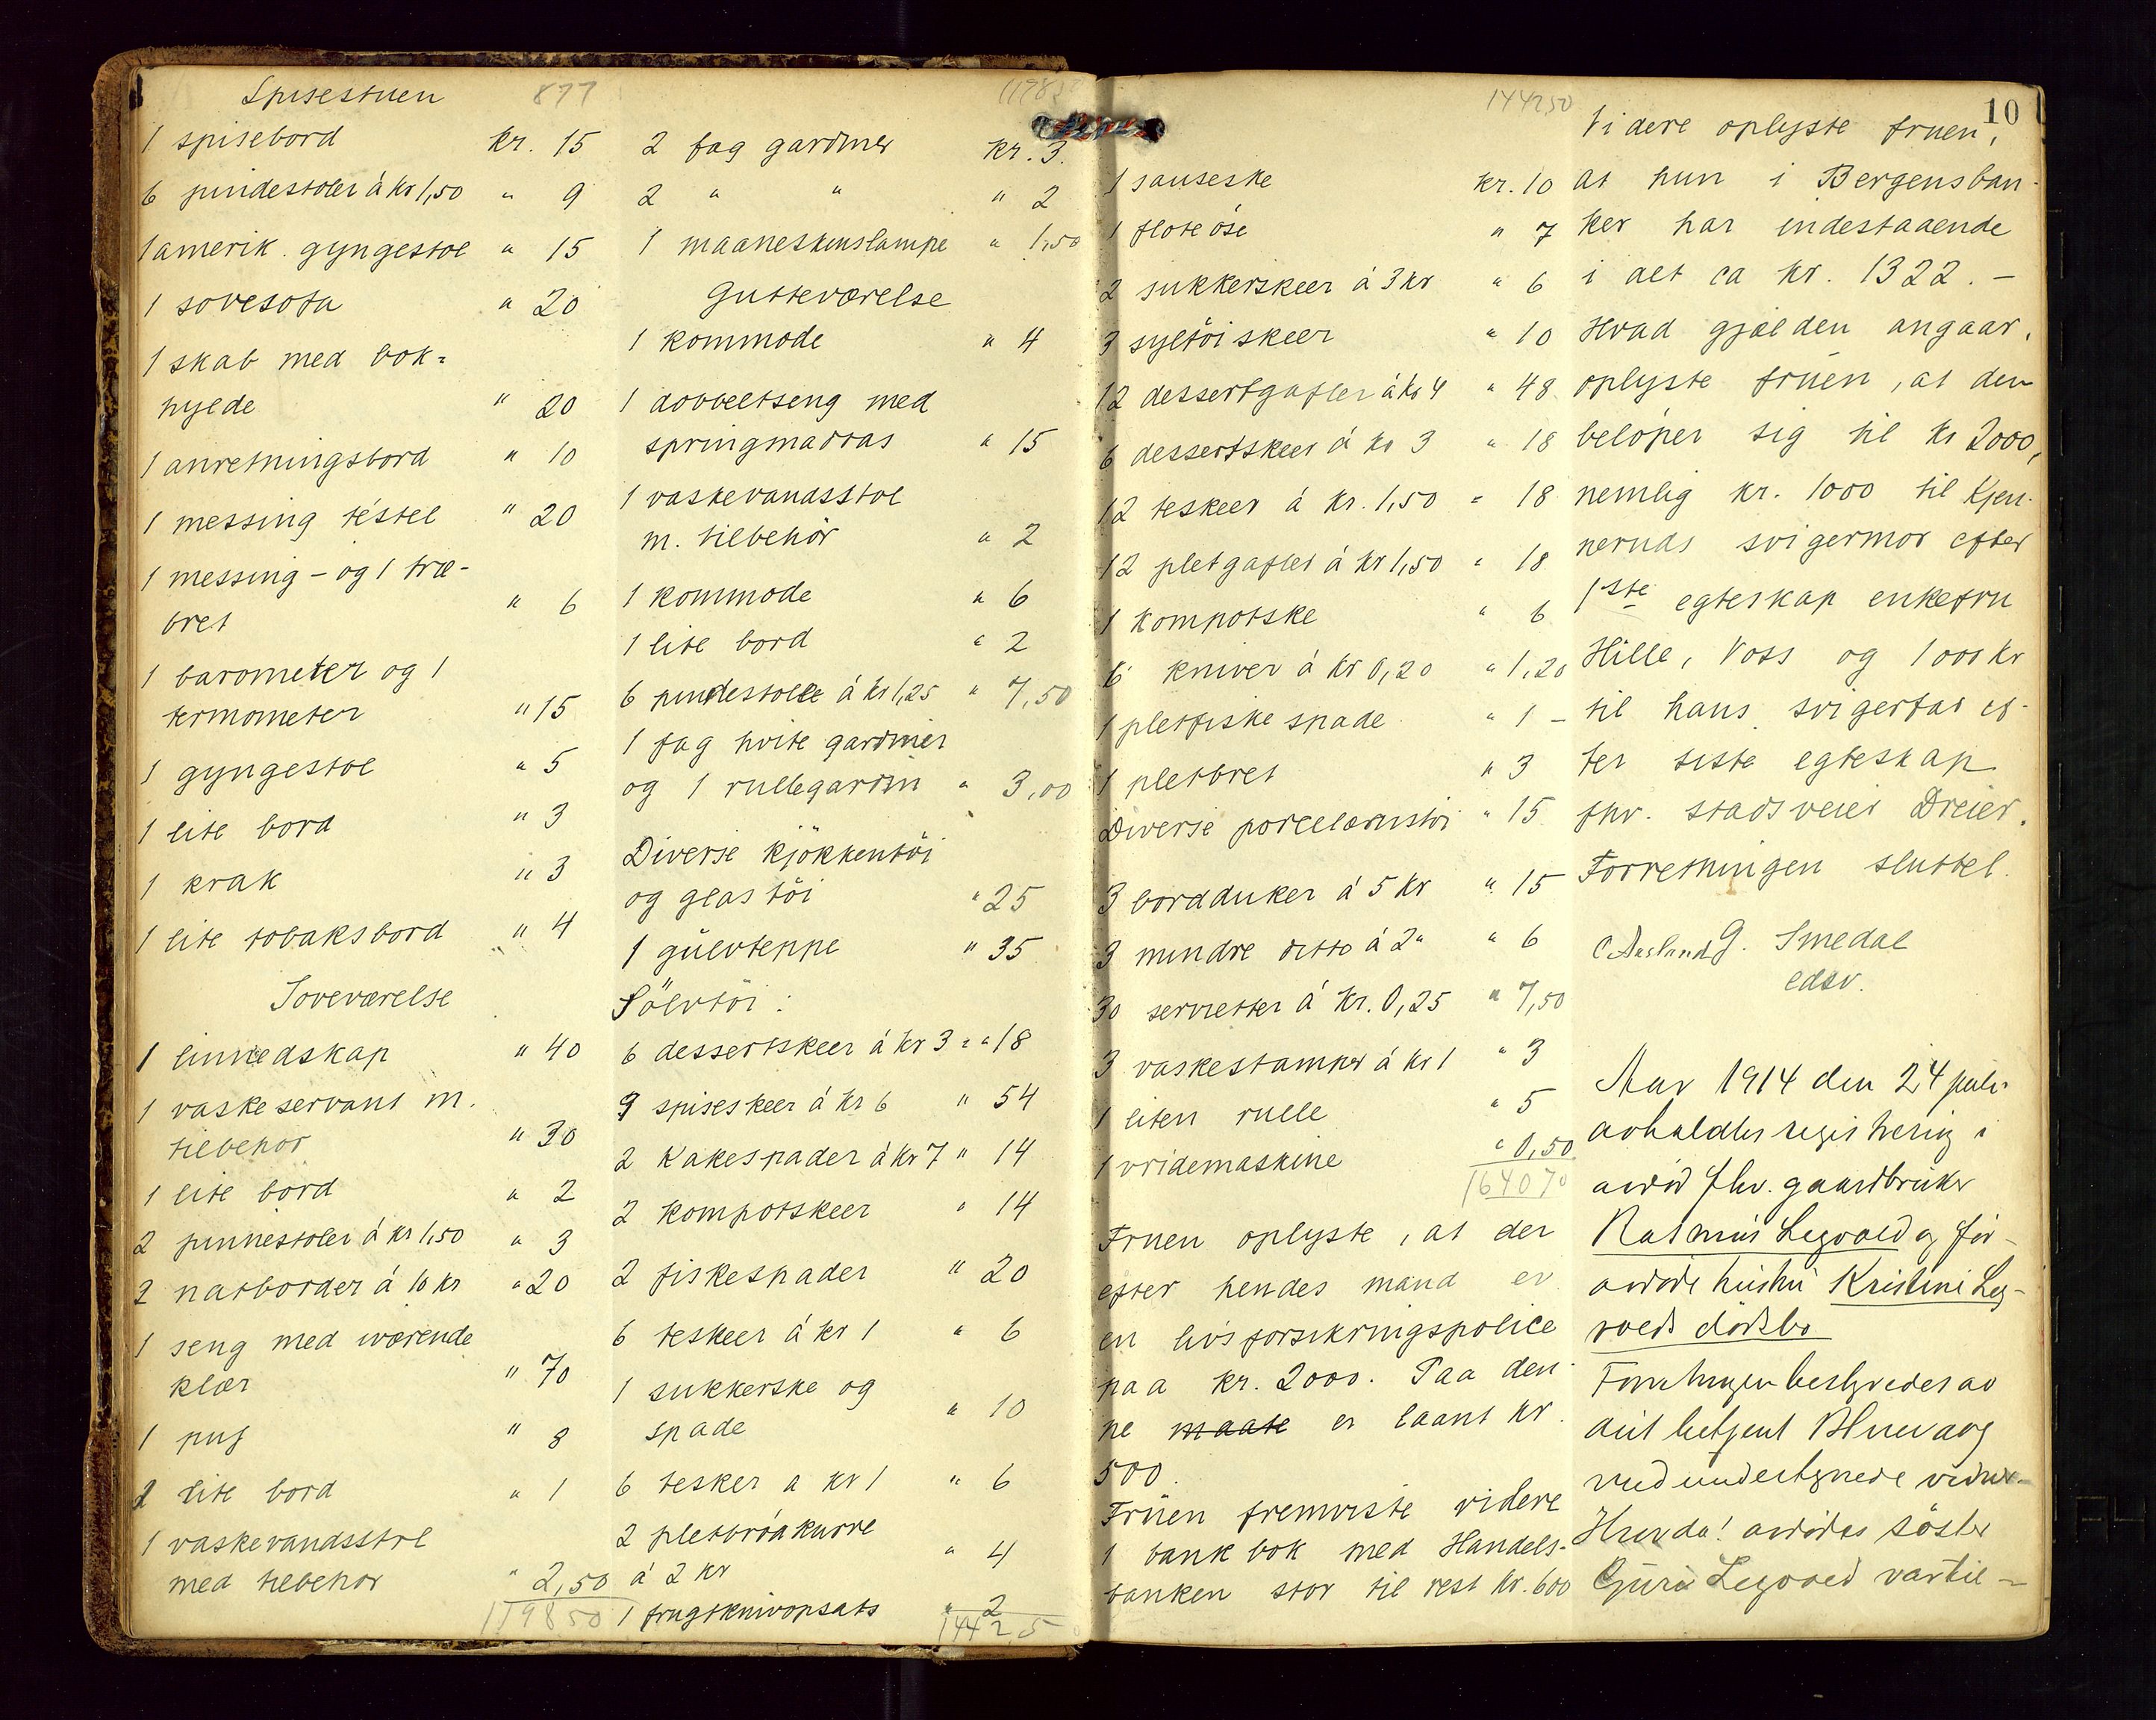 Spisestuen 877
1 spisebord kr. 15
6 pindestoler à kr 1,50 " 9
1 amerik. gyngestol " 15
1 sovesofa " 20
1 skab med bok=
hylde " 20
1 anretningsbord " 10
1 messing téstel " 20
1 messing - og 1 træ-
bret " 6
1 barometer og 1
termometer " 15
1 gyngestol " 5
1 lite bord " 3
1 krak " 3
1 lite tobaksbord " 4
Soveværelse
1 linnedskap " 40
1 vaskeservant m.
tilbehör " 30
1 lite bord " 2
2 pinnestoler à kr 1,50 " 3
2 natborder à 10 kr " 20
1 seng med iværende
klær " 70
1 puf " 8
2 lite bord " 1
1 vaskevandsstol
med tilbehör " 2,50
119850
11985
2 fag gardiner kr. 3.
2 " " " 2
1 maaneskinslampe " 1,50
Gutteværelse
1 kommode " 4
1 dobbeltseng med
springmadras " 15
1 vaskevandsstol
m. tilbehör " 2
1 kommode " 6
1 lite bord " 2
6 pindestole à kr 1,25 " 7,50
1 fag hvite gardiner
og 1 rullegardin " 3,00
Diverse kjökkentöi
og glastöi " 25
1 gulvteppe " 35
Sölvtöi:
6 dessertskeer à kr 3 = " 18
9 spiseskeer à kr 6 " 54
2 kakespader à kr 7 " 14
2 kompotskeer " 14
2 fiskespader " 20
6 teskeer à kr 1 " 6
1 sukkerske og
spade " 10
6 tesker a kr 1 " 6
2 pletbrödkurve
à 2 kr " 4
1 frugtknivopsats " 2
14425
144250
1 sauseske kr. 10
1 flöteöse " 7
2 sukkerskeer à 3 kr " 6
3 syltöiskeer " 10
12 dessertgafler à kr 4 " 48
6 dessertskeer à kr 3 " 18
12 teskeer à kr. 1,50 = 18
12 pletgafler à kr 1,50 " 18
1 kompotske " 6
6 kniver à kr 0,20 " 1,20
1 pletfiskespade " 1 -
1 pletbret " 3
Diverse porcelænstöi " 15
3 bordduker à 5 kr " 15
3 mindre ditto à 2 " " 6
30 servietter à kr. 0,25 " 7,50
3 vaskestamper à kr 1 " 3
1 liten rulle " 5
1 vridemaskine " 0,50
164070
Fruen oplyste, at der
efter hendes mand er
en livsforsikringspolice
paa kr. 2000. Paa den-
ne maate er laant kr.
500.
Fruen fremviste videre
1 bankbok med Handels-
banken stor til rest kr. 600
10
Videre oplyste fruen,
at hun i Bergensban-
ker har indestaaende
i alt ca kr. 1322. -
Hvad gjælden angaar,
oplyste fruen, at den
belöper sig til kr 2000,
nemlig kr. 1000 til Kjen-
neruds svigermor efter
1ste egteskap enkefru
Hille, Voss og 1000 kr
til hans svigerfar ef-
ter siste egteskap
fhv. stadsveier Dreier.
Forretningen sluttet.
C Aasland G. Smedal
edsv.
Aar 1914 den 24 juli
avholdtes registrering i
avdöd fhv. gaardbruker
Rasmus Legvold og för-
avdöde hustru Kristine Leg-
volds dödsbo
Forretningen bestyredes av
ved undertegnede vidner
avdödes söster
Guri Legvold var til-